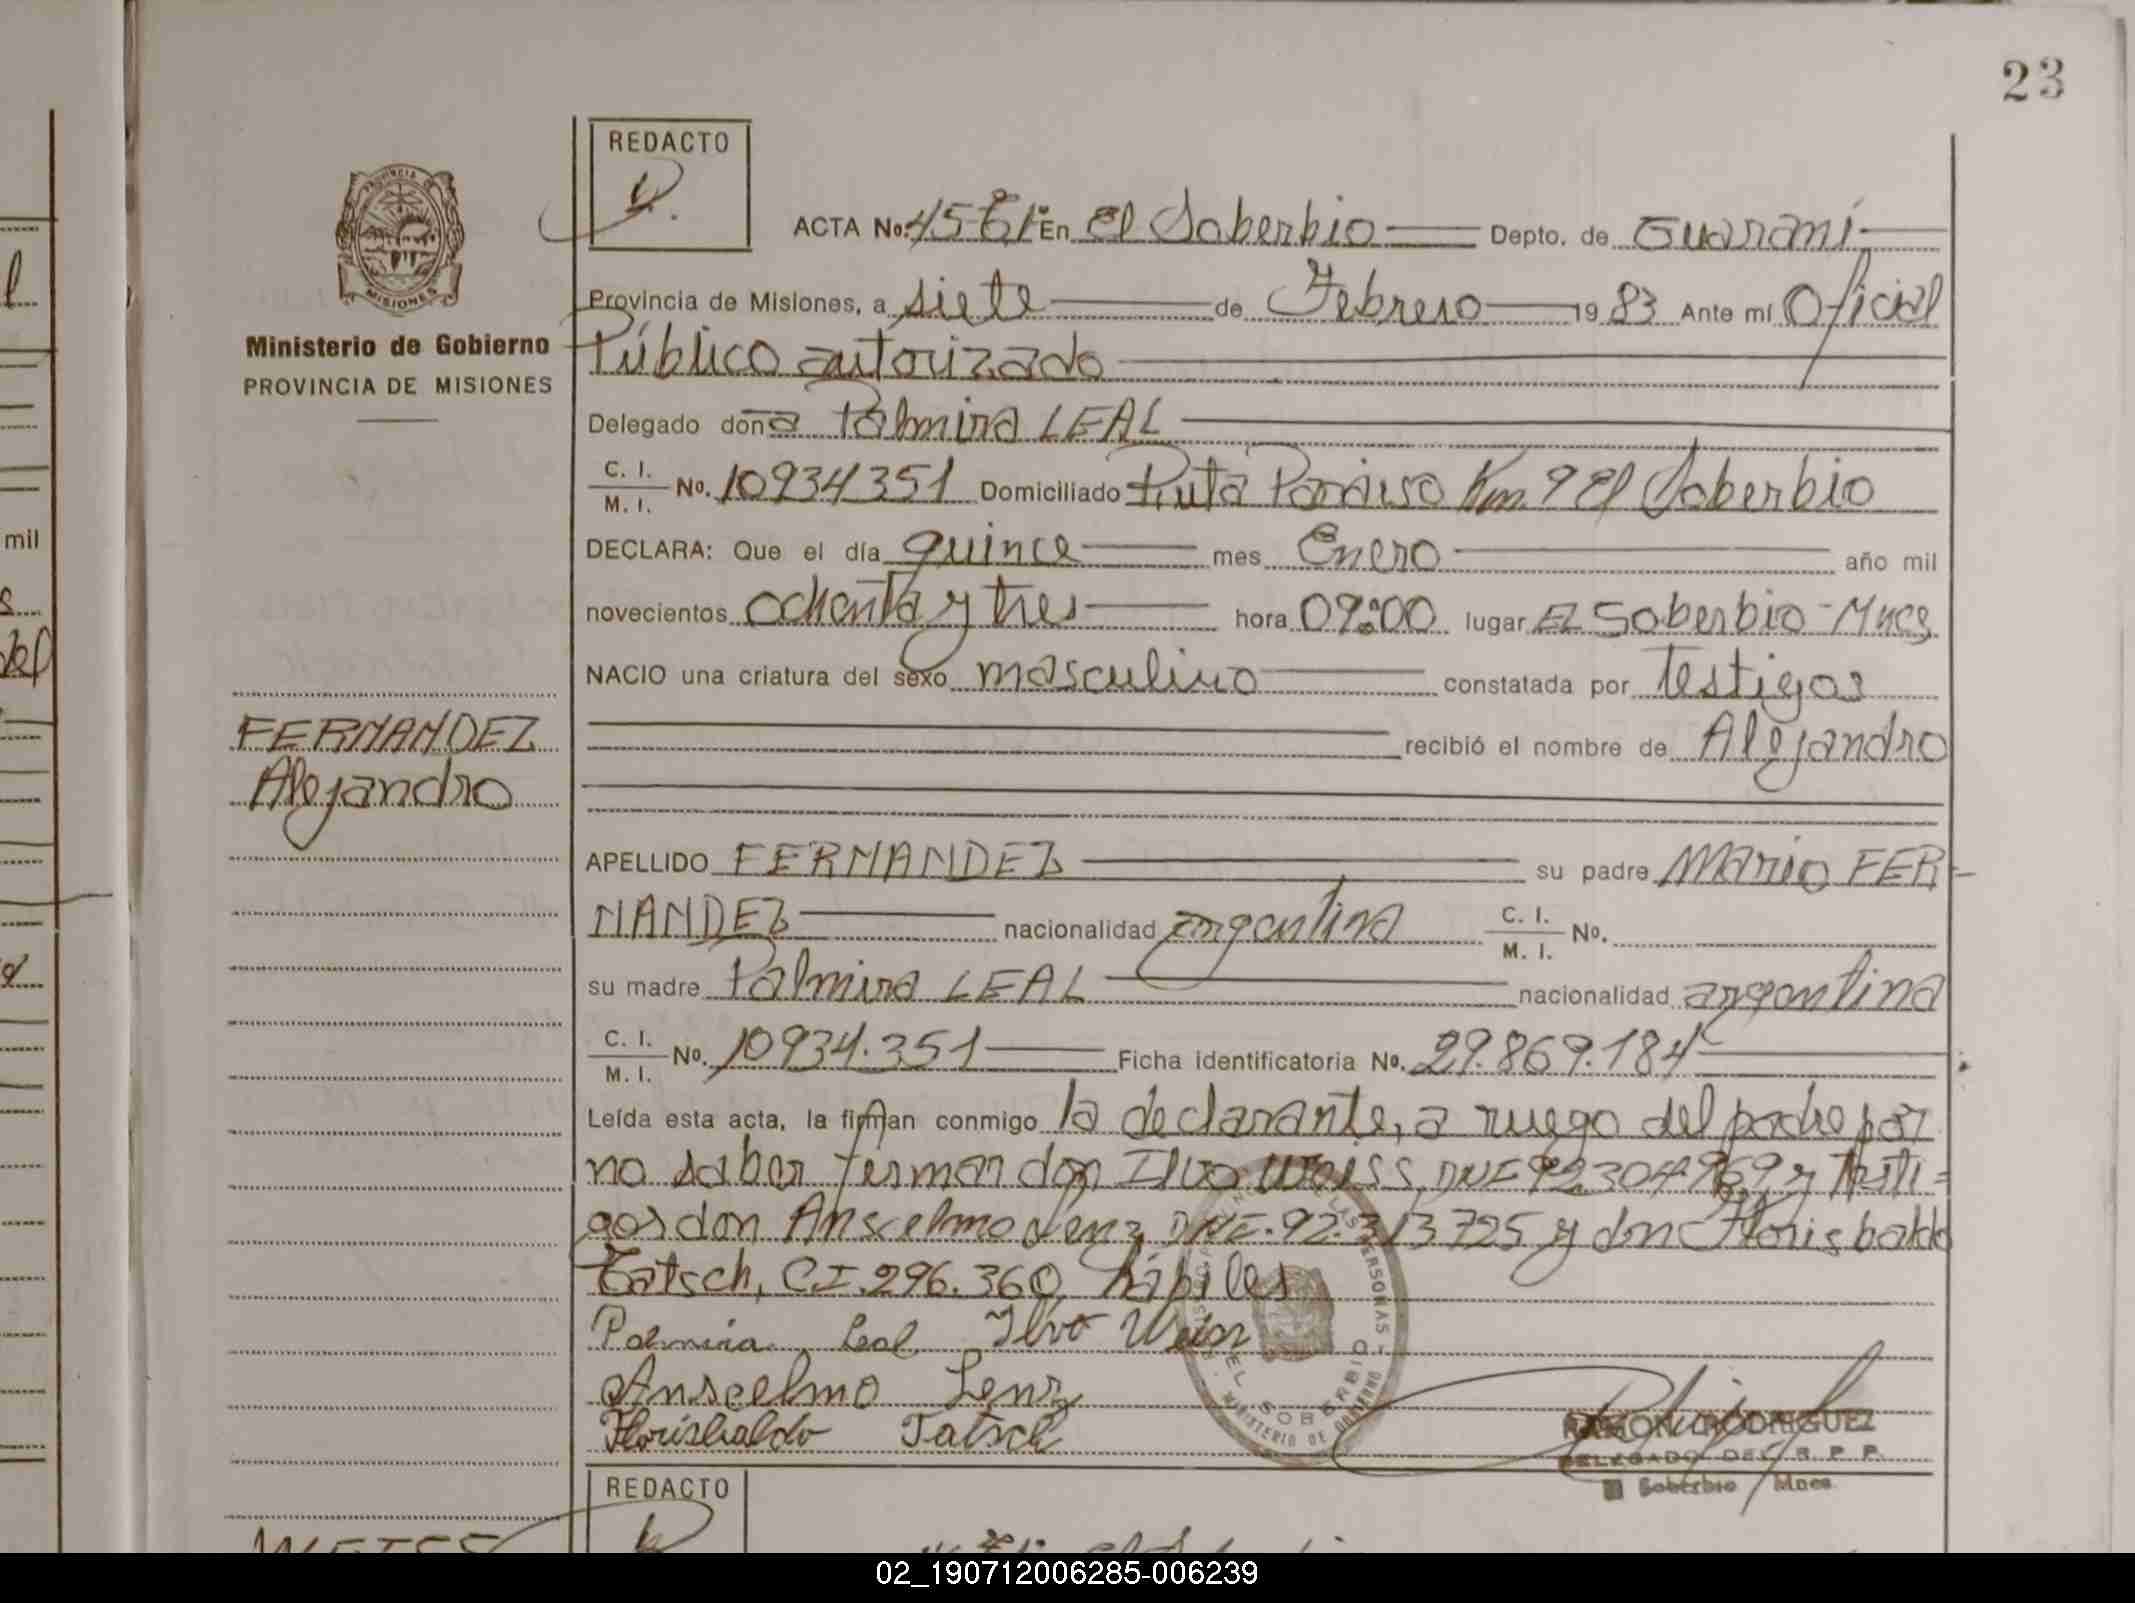 23
REDACTO
ACTA No. En El Soberbio Depto. de Guaraní
Provincia de Misiones, a siete de Febrero 1983 Ante mí Oficial
Público autorizado
Ministerio de Gobierno
PROVINCIA DE MISIONES
Delegado doña Palmira LEAL
C. I. M. I. No. 10934351 Domiciliado Ruta Paraiso Km. 9 El Soberbio
DECLARA: Que el día quince mes Enero año mil
novecientos ochenta y tres hora 09:00 lugar El Soberbio - Mnes
NACIO una criatura del sexo masculino constatada por testigos
recibió el nombre de Alejandro
FERNANDEZ
Alejandro
APELLIDO FERNANDEZ su padre Mario FER-
NANDEZ nacionalidad argentina C. I. M. I. No.
su madre Palmira LEAL nacionalidad argentina
C. I. M. I. No. 10934.351 Ficha identificatoria No. 29.869.184
Leída esta acta, la firman conmigo la declarante, a ruego del padre por
no saber firmar don Ilvo Weiss, DNE y Testi=
gos don Anscelmo Lenz DNE. 92.313725 y don Florisbaldo
Tatsch, CI. 296.360, hábiles
Palmira Leal Ilvo Weiss
Anscelmo Lenz
Florisbaldo Tatsch
EL SOBERBIO
MINISTERIO DE GOBIERNO
RAMON RODRIGUEZ
DELEGADO DEL R. P. P.
El Soberbio Mnes.
REDACTO
WEISS
02_190712006285-006239